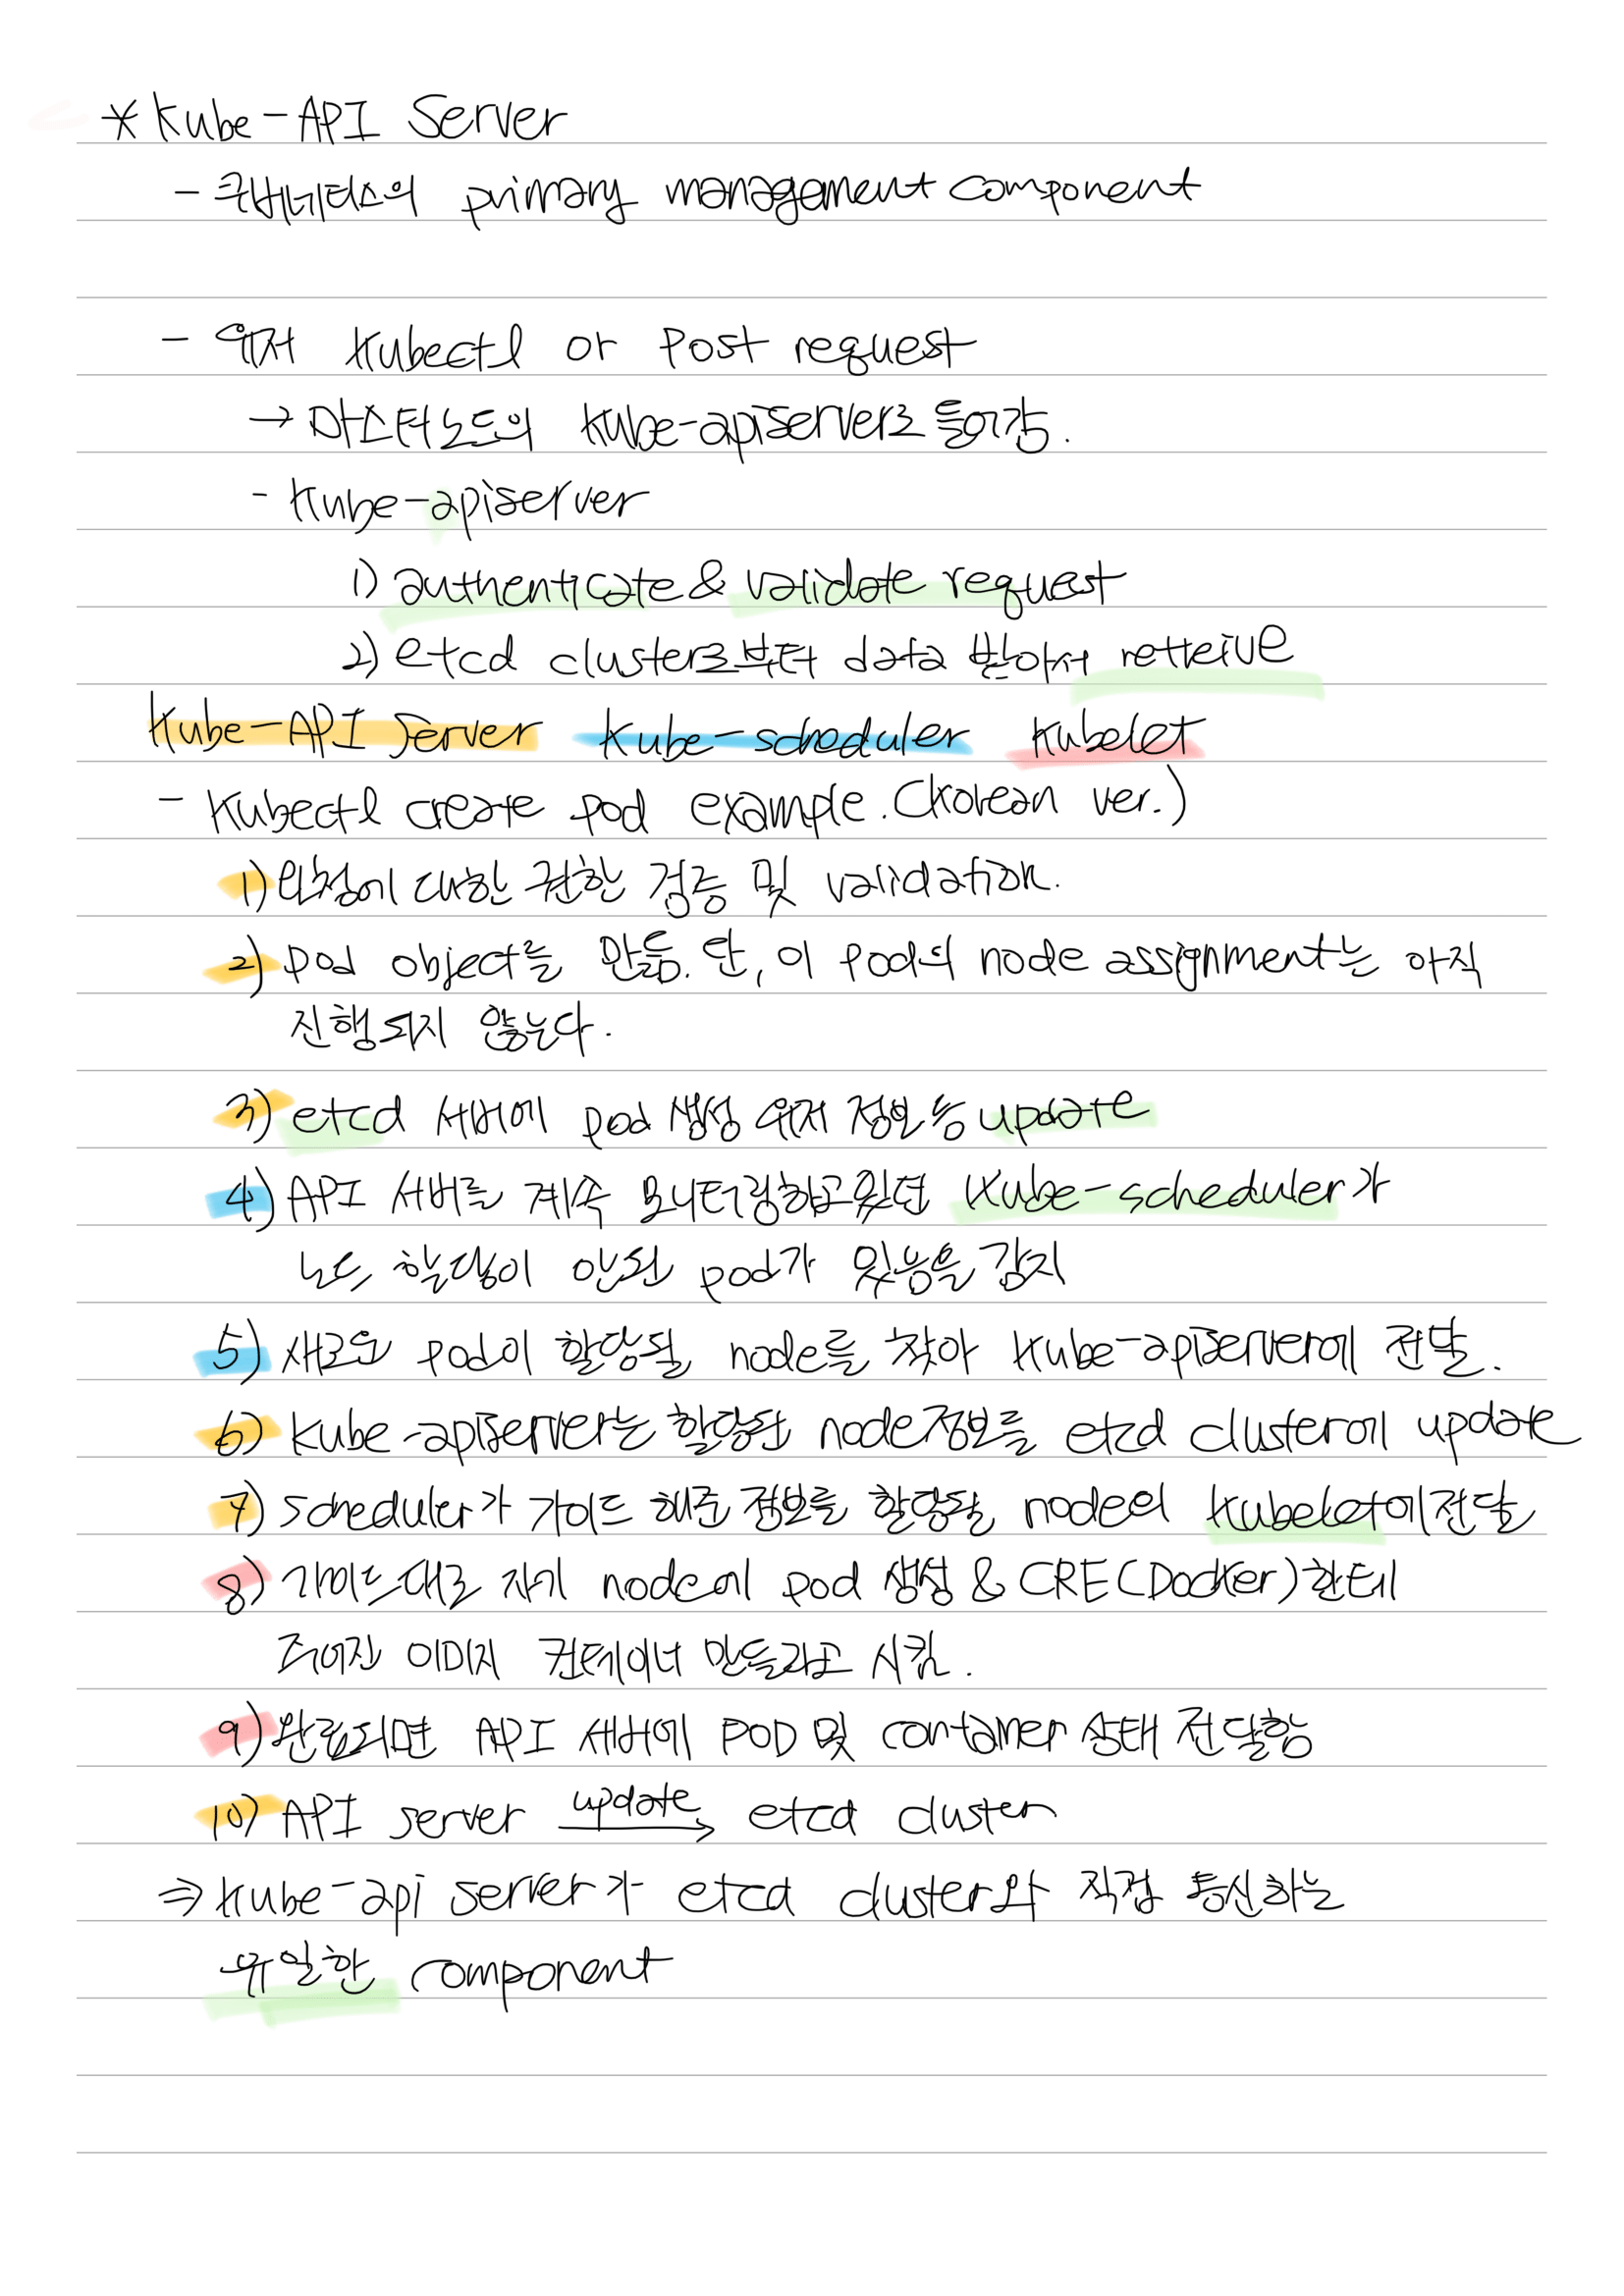 * Kube-API Server
- 쿠버네티스의 primary management component
- 유저 kubectl or Post request
→ 마스터노드의 kube-apiserver로 들어감.
- kube-apiserver
1) authenticate & validate request
2) etcd cluster로부터 data 받아서 retreive
Kube-API Server Kube-scheduler Kubelet
- Kubectl create pod example. (korean ver.)
1) 요청에 대한 권한 검증 및 validation.
2) pod object를 만듦. 단, 이 pod의 node assignment는 아직
진행되지 않는다.
3) etcd 서버에 pod 생성 유저 정보 등 update
4) API 서버를 계속 모니터링하고있던 Kube-scheduler가
노드 할당이 안된 pod가 있음을 감지
5) 새로운 pod이 할당될 node를 찾아 kube-apiserver에 전달.
6) kube-apiserver는 할당된 node정보를 etcd cluster에 update
7) scheduler가 가이드 해준 정보를 할당될 node의 kubelet에 전달
8) 가이드대로 자기 node에 pod 생성 & CRE(Docker)한테
주어진 이미지 컨테이너 만들라고 시킴.
9) 완료되면 API 서버에 POD 및 container 상태 전달함
10) API server update → etcd cluster
⇒ kube-api server가 etcd cluster와 직접 통신하는
유일한 component